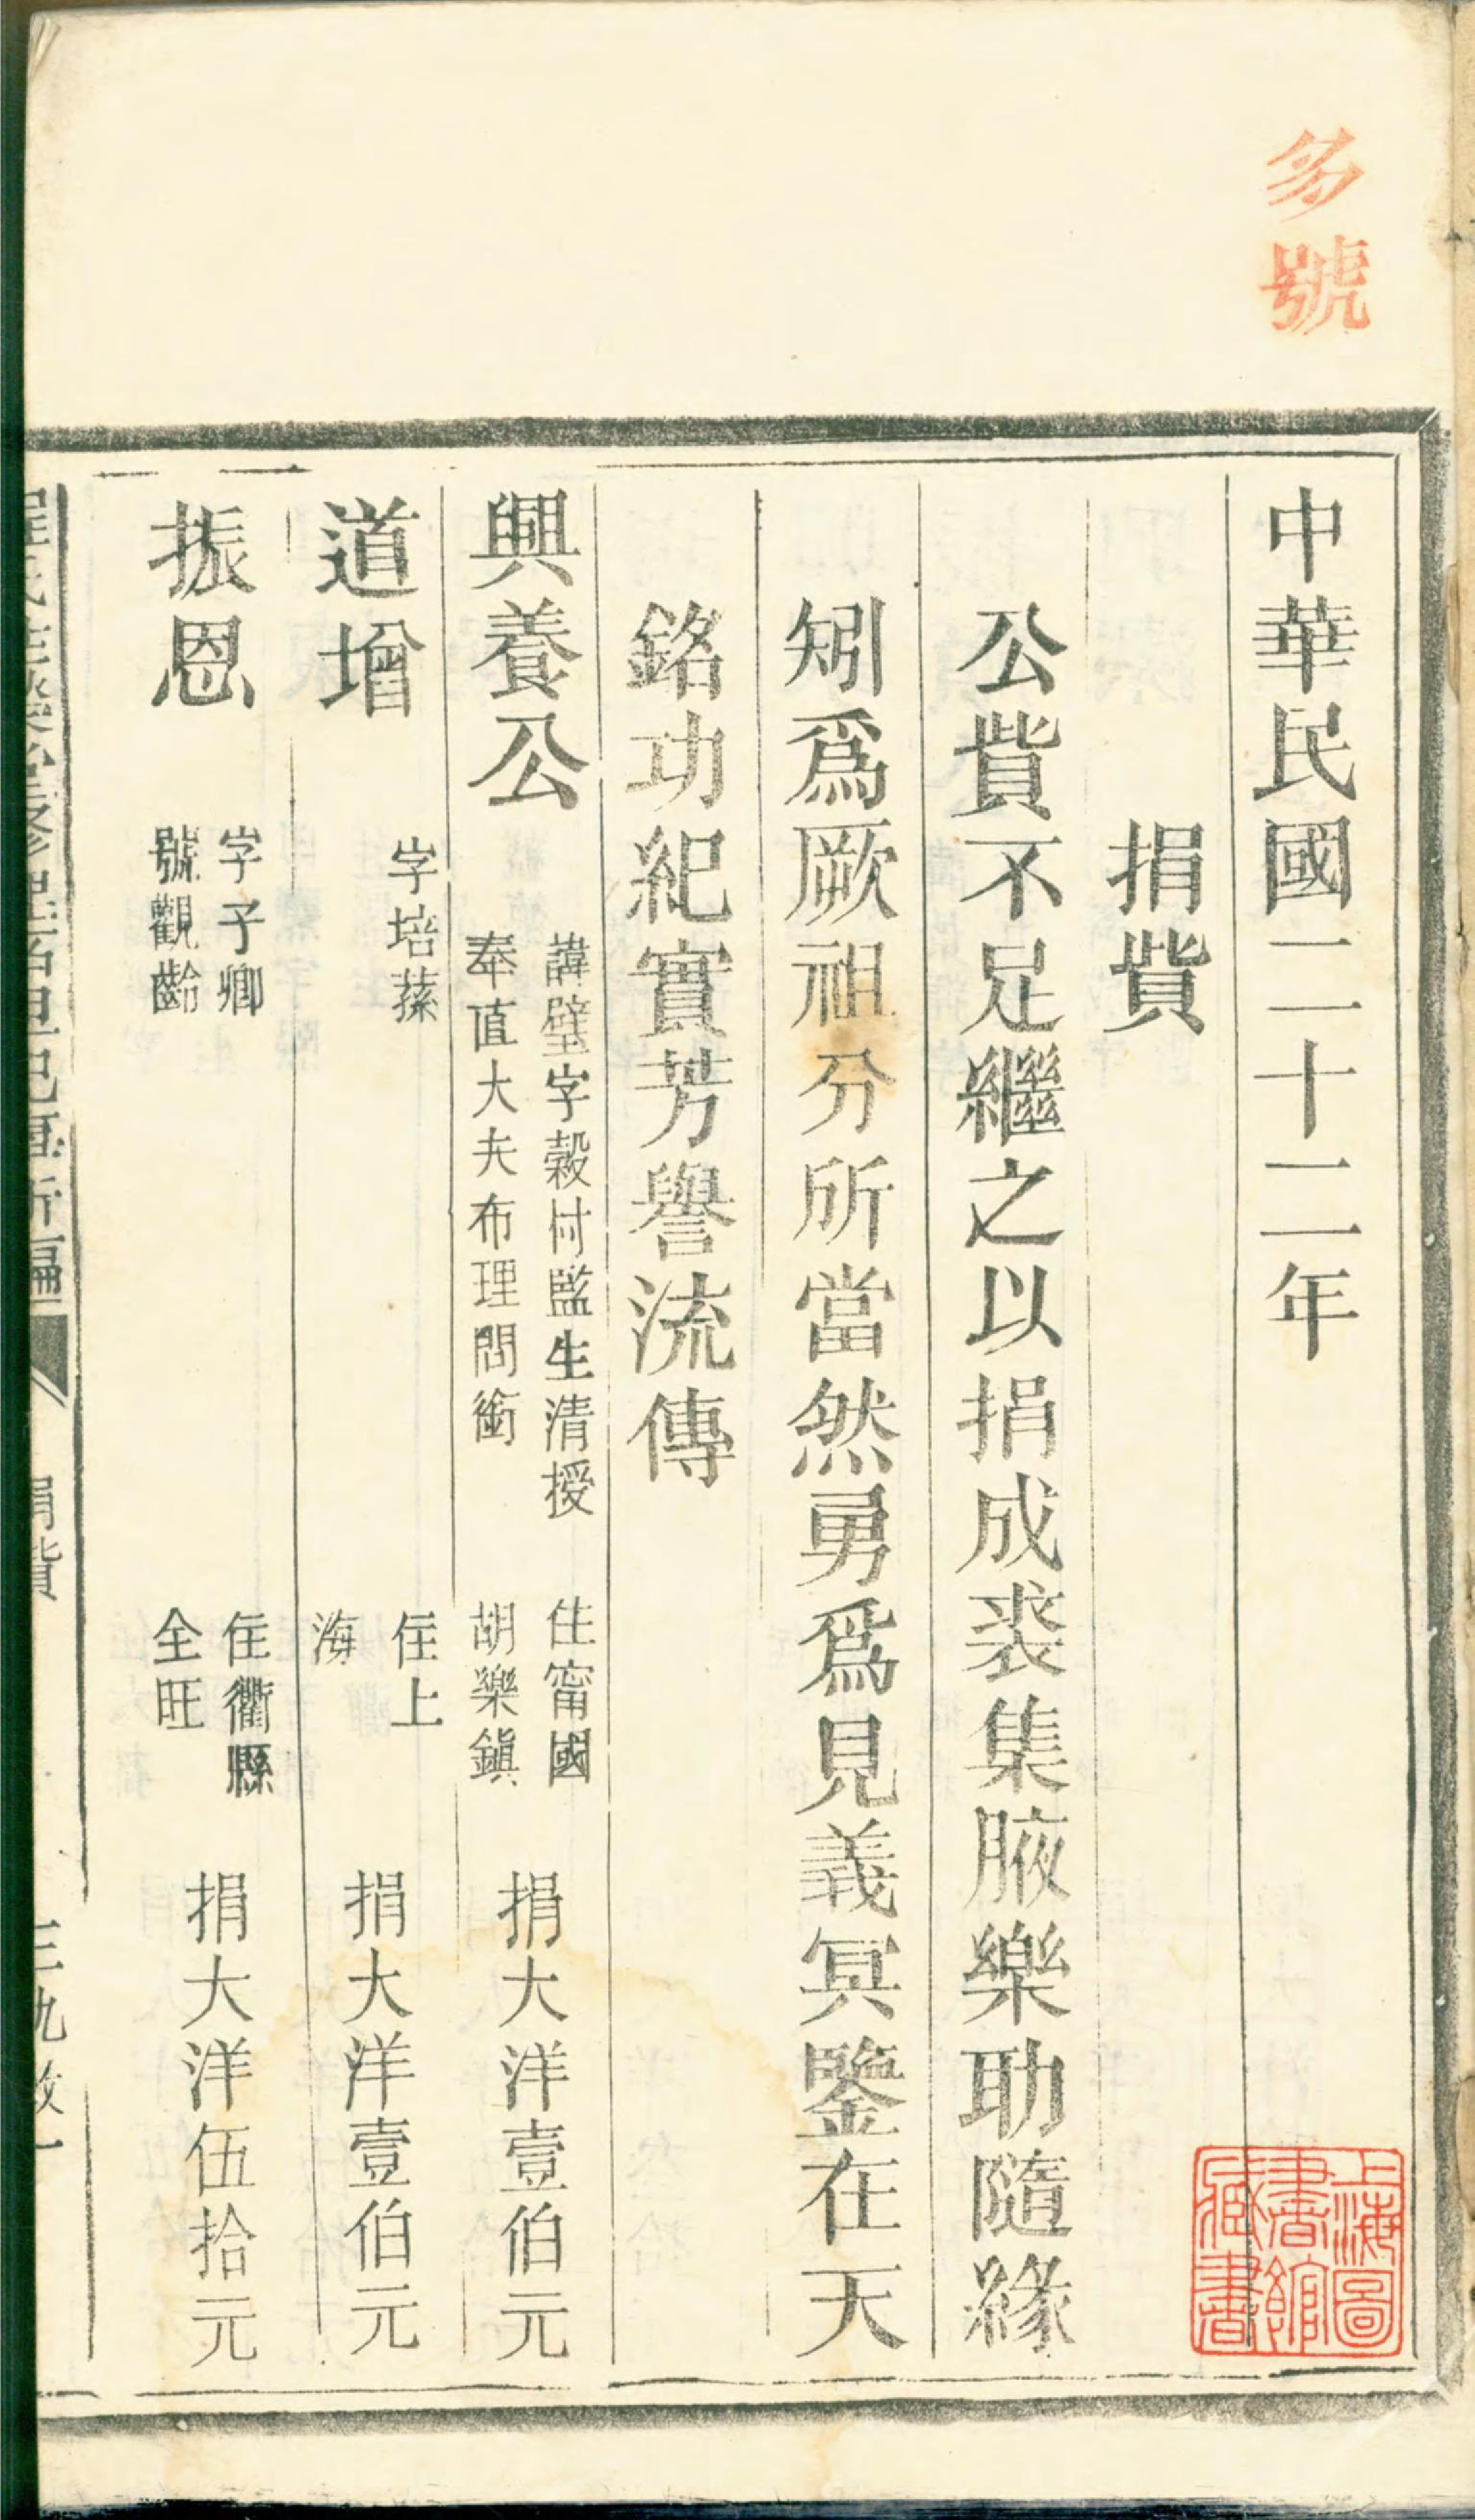 多號
中華民國二十二年
捐貲
公貲不足繼之以捐成裘集腋樂助隨緣
矧爲厥祖分所當然勇爲見義冥鑒在天
銘功紀實芳譽流傳
興養公
諱璧字穀付監生清授
奉直大夫布理問銜
住甯國
胡樂鎭
捐大洋壹伯元
道增
字培蓀
住上
海
捐大洋壹伯元
振恩
字子卿
號觀齡
住衢縣
全旺
捐大洋伍拾元
捐貲
上海圖書館藏書